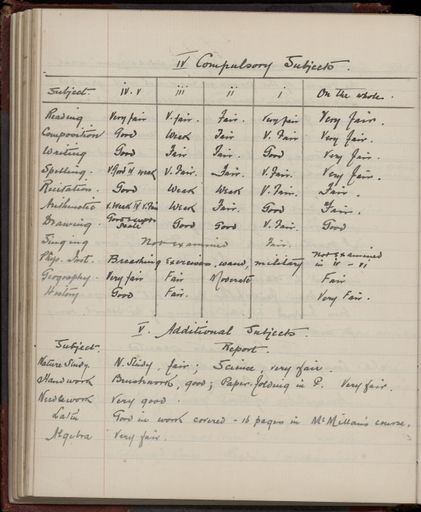 IV Compulsory Subjects.
Subject. iv. v iii ii i On the whole.
Reading Very fair V. fair. Fair. Very fair Very fair.
Composition Good Weak Fair V. Fair Very fair.
Writing Good Fair Fair. Good Very fair.
Spelling. V. Good IV weak V. Fair. Fair. V. Fair. Very fair.
Recitation. Good Weak Weak V. Fair. Fair.
Arithmetic V. Weak IV V. Fair Weak Fair. Good Fair.
Drawing. Good except Scale Good Good V. Fair. Good
Singing Not examined Fair.
Phys. Inst. Breathing Exercises, wand, military Not examined in IV - VI
Geography. Very fair Fair Moderate Fair
History Good Fair. Very Fair.
V. Additional Subjects
Subject. Report.
Nature Study. N. Study, fair; Science, very fair.
Handwork Brushwork, good; Paper-folding in P. Very fair.
Needlework Very good
Latin Good in work covered - 16 pages in McMillan's course.
Algebra Very fair.